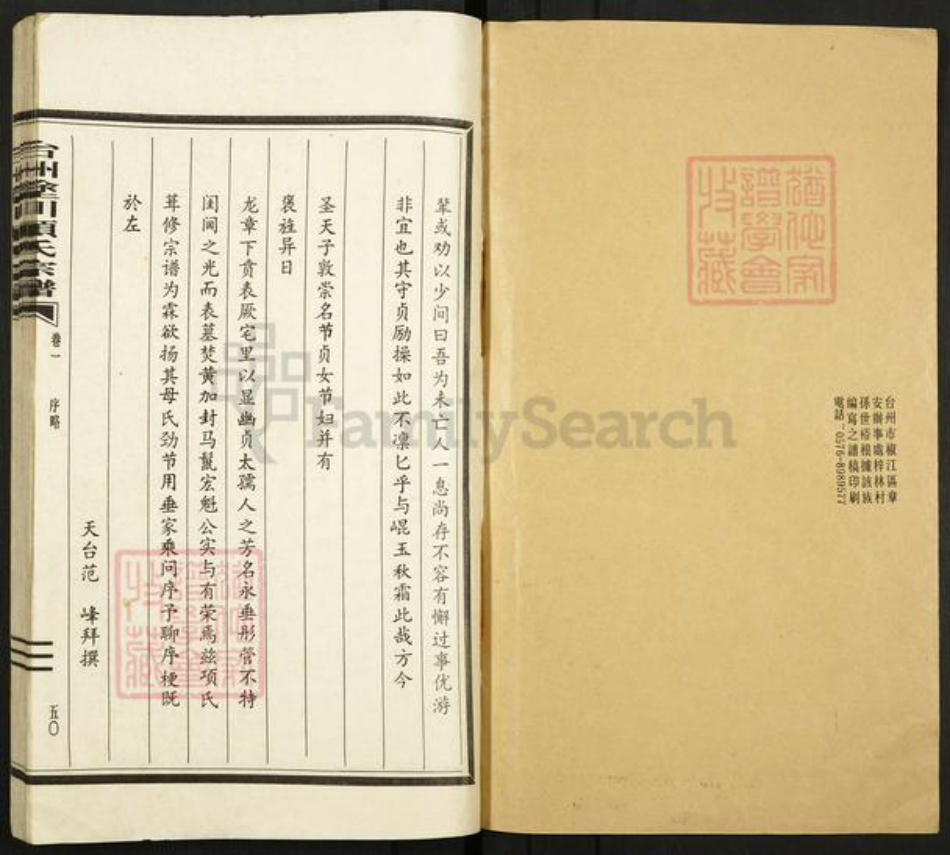 台州市椒江區章
安辦事處梓林村
孫世裕根據該族
編寫之譜稿印刷
電話：0576-8989577
辈或劝以少间曰吾为未亡人一息尚存不容有懈过事优游
非宜也其守贞励操如此不凛匕乎与崐玉秋霜此哉方今
圣天子敦崇名节贞女节妇并有
褒旌异日
龙章下贲表厥宅里以显幽贞太孺人之芳名永垂彤管不特
闺阃之光而表墓焚黄加封马鬣宏魁公实与有荣焉兹项氏
葺修宗谱为霖欲扬其母氏劲节用垂家乘问序予聊序梗既
於左
天台范 峰拜撰
項氏宗譜
卷一 序略 五〇
FamilySearch
譜學會
收藏